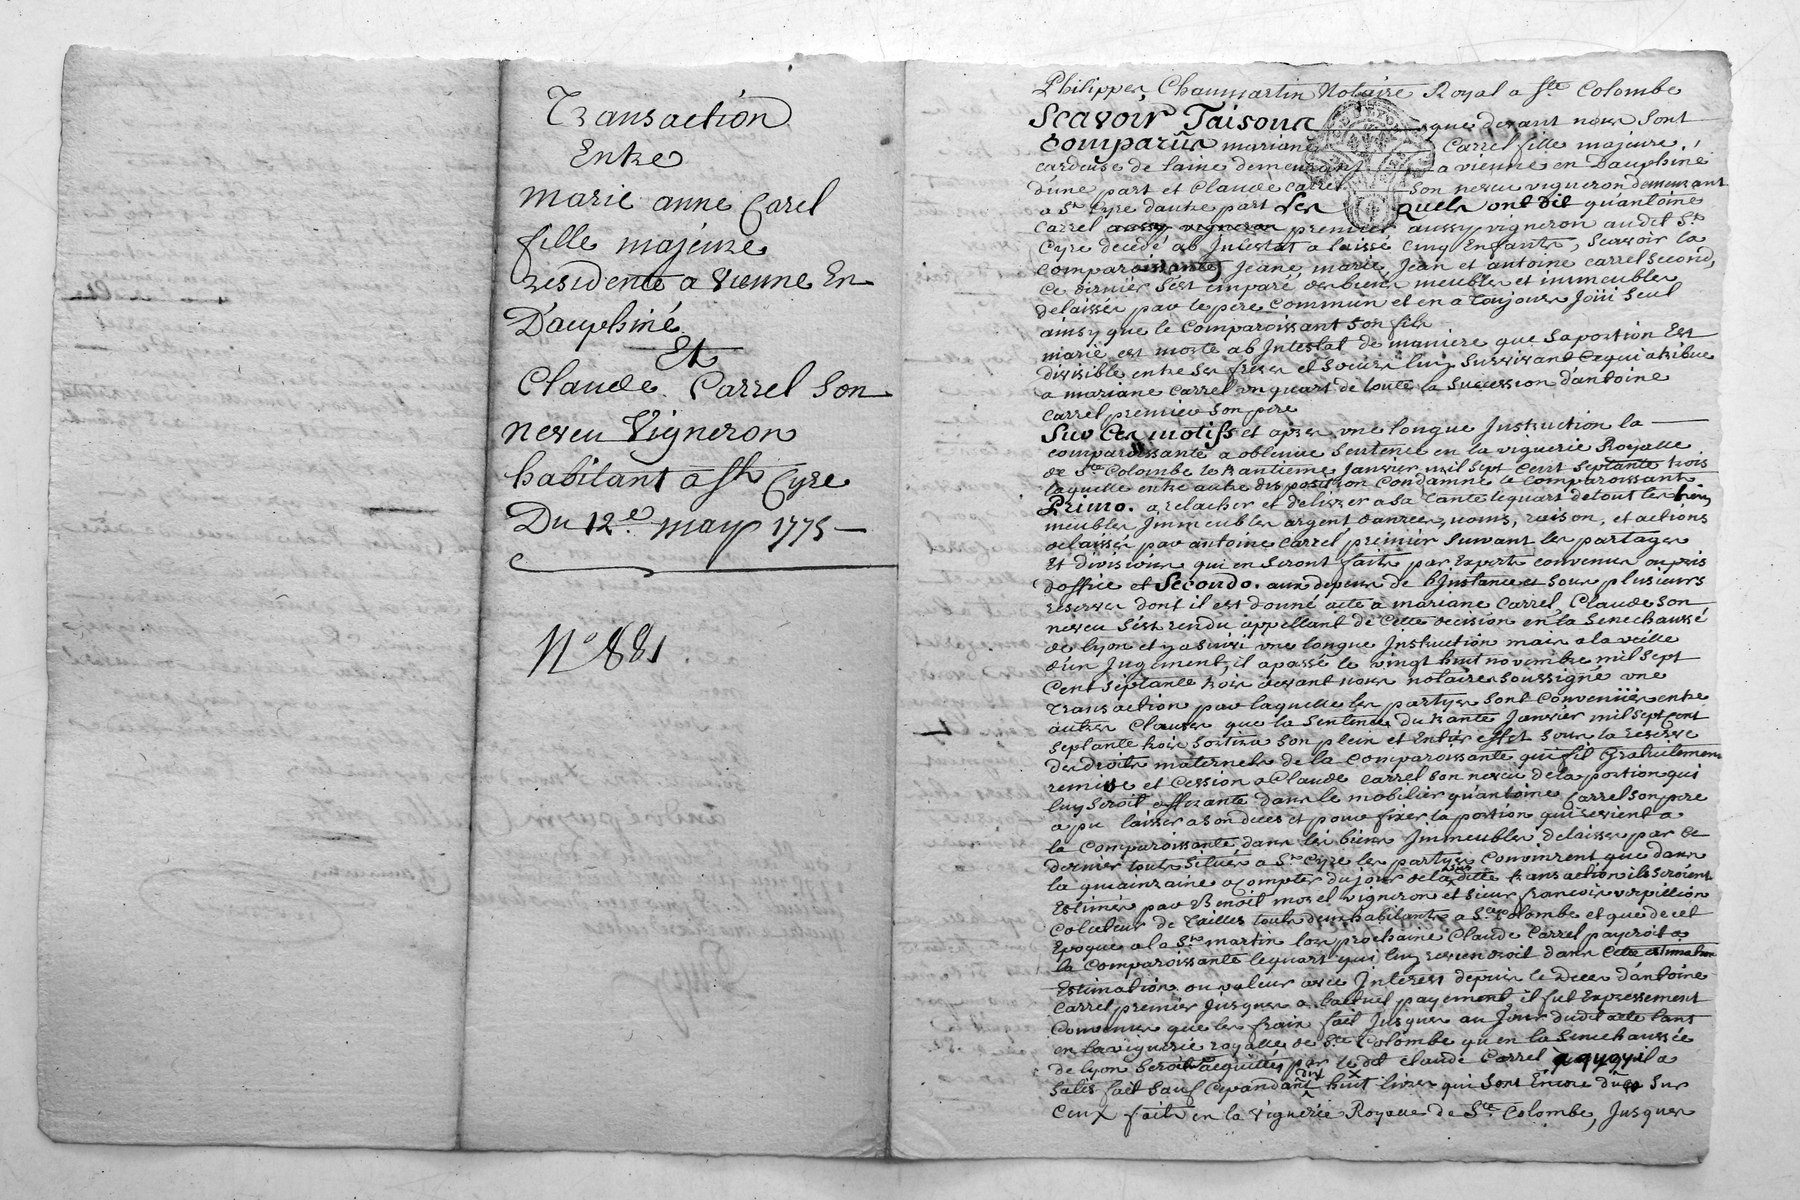 Transaction
Entre
marie anne Carel
fille majeure
residente a Vienne En
Dauphiné
Et
Claude Carrel Son
neveu Vigneron
habitant a St Cyre
Du 12.e may 1775
N.o 881
Philippes Chaumartin Notaire Royal a Ste Colombe
Scavoir faisons que devant nous sont
Comparûs mariane Carrel fille majeure
cardeuse de laine demeurant a vienne en Dauphiné
d'une part et Claude carrel son neveu vigneron demeurant
a St Cyre d'autre part Lesquels ont dit qu'antoine
Carrel premier aussy vigneron audit St
Cyre decedé ab Intestat a laissé cinq Enfants, Scavoir la
comparoissante, Jeane, marie, Jean et antoine carrel second,
ce dernier s'est emparé des biens meubles et immeubles
delaissés par le pere commun et en a toujours Joüi seul
ainsy que le Comparoissant son fils
marie est morte ab Intestat de maniere que sa portion Est
divisible entre ses freres et soeurs luy survivant Ce qui atribue
a mariane Carrel un quart de toute la succession d'antoine
Carrel premier son pere
Sur Ces motifs et apres une longue Instruction la
comparoissante a obtenue sentence en la viguerie Royalle
de Ste Colombe le trantieme Janvier mil sept cent septante trois
laquelle entre autre disposition Condamne le Comparoissant
Primo. a relacher et delivrer a sa tante le quart de tout les biens
meubles, Immeubles argent danrées, noms, raison, et actions
delaissés par antoine Carrel premier suivant les partages
et divisions qui en seront faits par Experts convenus ou pris
d'office et Secondo. aux depens de l'Instance et sous plusieurs
reserves dont il est donné acte a mariane Carrel, Claude son
neveu s'est rendu appellant de cette decision en la Senechaussé
de lyon et y a suivi une longue Instruction mais a la veille
d'un Jugement, il a passé le vingt huit novembre mil sept
Cent septante trois devant nous notaire soussigné une
transaction par laquelle les partyes sont Convenües entre
autres Clauses que la Sentence du trante Janvier mil sept Cent
septante trois sortira son plein et Entier effet sous la reserve
des droits maternels de la Comparoissante qui fit Gratuitement
remise et Cession a Claude Carrel son neveu de la portion qui
luy seroit afferante dans le mobilier qu'antoine Carrel son pere
a pu laisser a son deces et pour fixer la portion qui revient a
la Comparoissante dans les biens Immeubles delaissés par ce
dernier touts situés a St Cyre les partyes Convinrent que dans
la quainzaine a compter du jour de la ditte transaction ils seroient
Estimés par Benoit morel vigneron et sieur francois verpillion
Colecteur de tailles touts deux habitants a Ste Colombe et que de cet
Epoque a la St martin lors prochaine Claude Carrel payeroit a
la Comparoissante le quart qui luy reviendroit dans Cette estimation
Estimation ou valeur avec Interest depuis le deces d'antoine
Carrel premier Jusques a l'actuel payement, il fut Expressement
Convenus que les frais fait Jusques au Jour dudit acte tant
en la viguerie royalle de Ste Colombe qu'en la Senechaussée
de lyon seroit acquittés par le dit claude Carrel a quoy il a
satisfait sauf Cependant dix huit livres qui sont Encore dûes sur
ceux faits en la Viguerie Royalle de Ste Colombe, Jusques